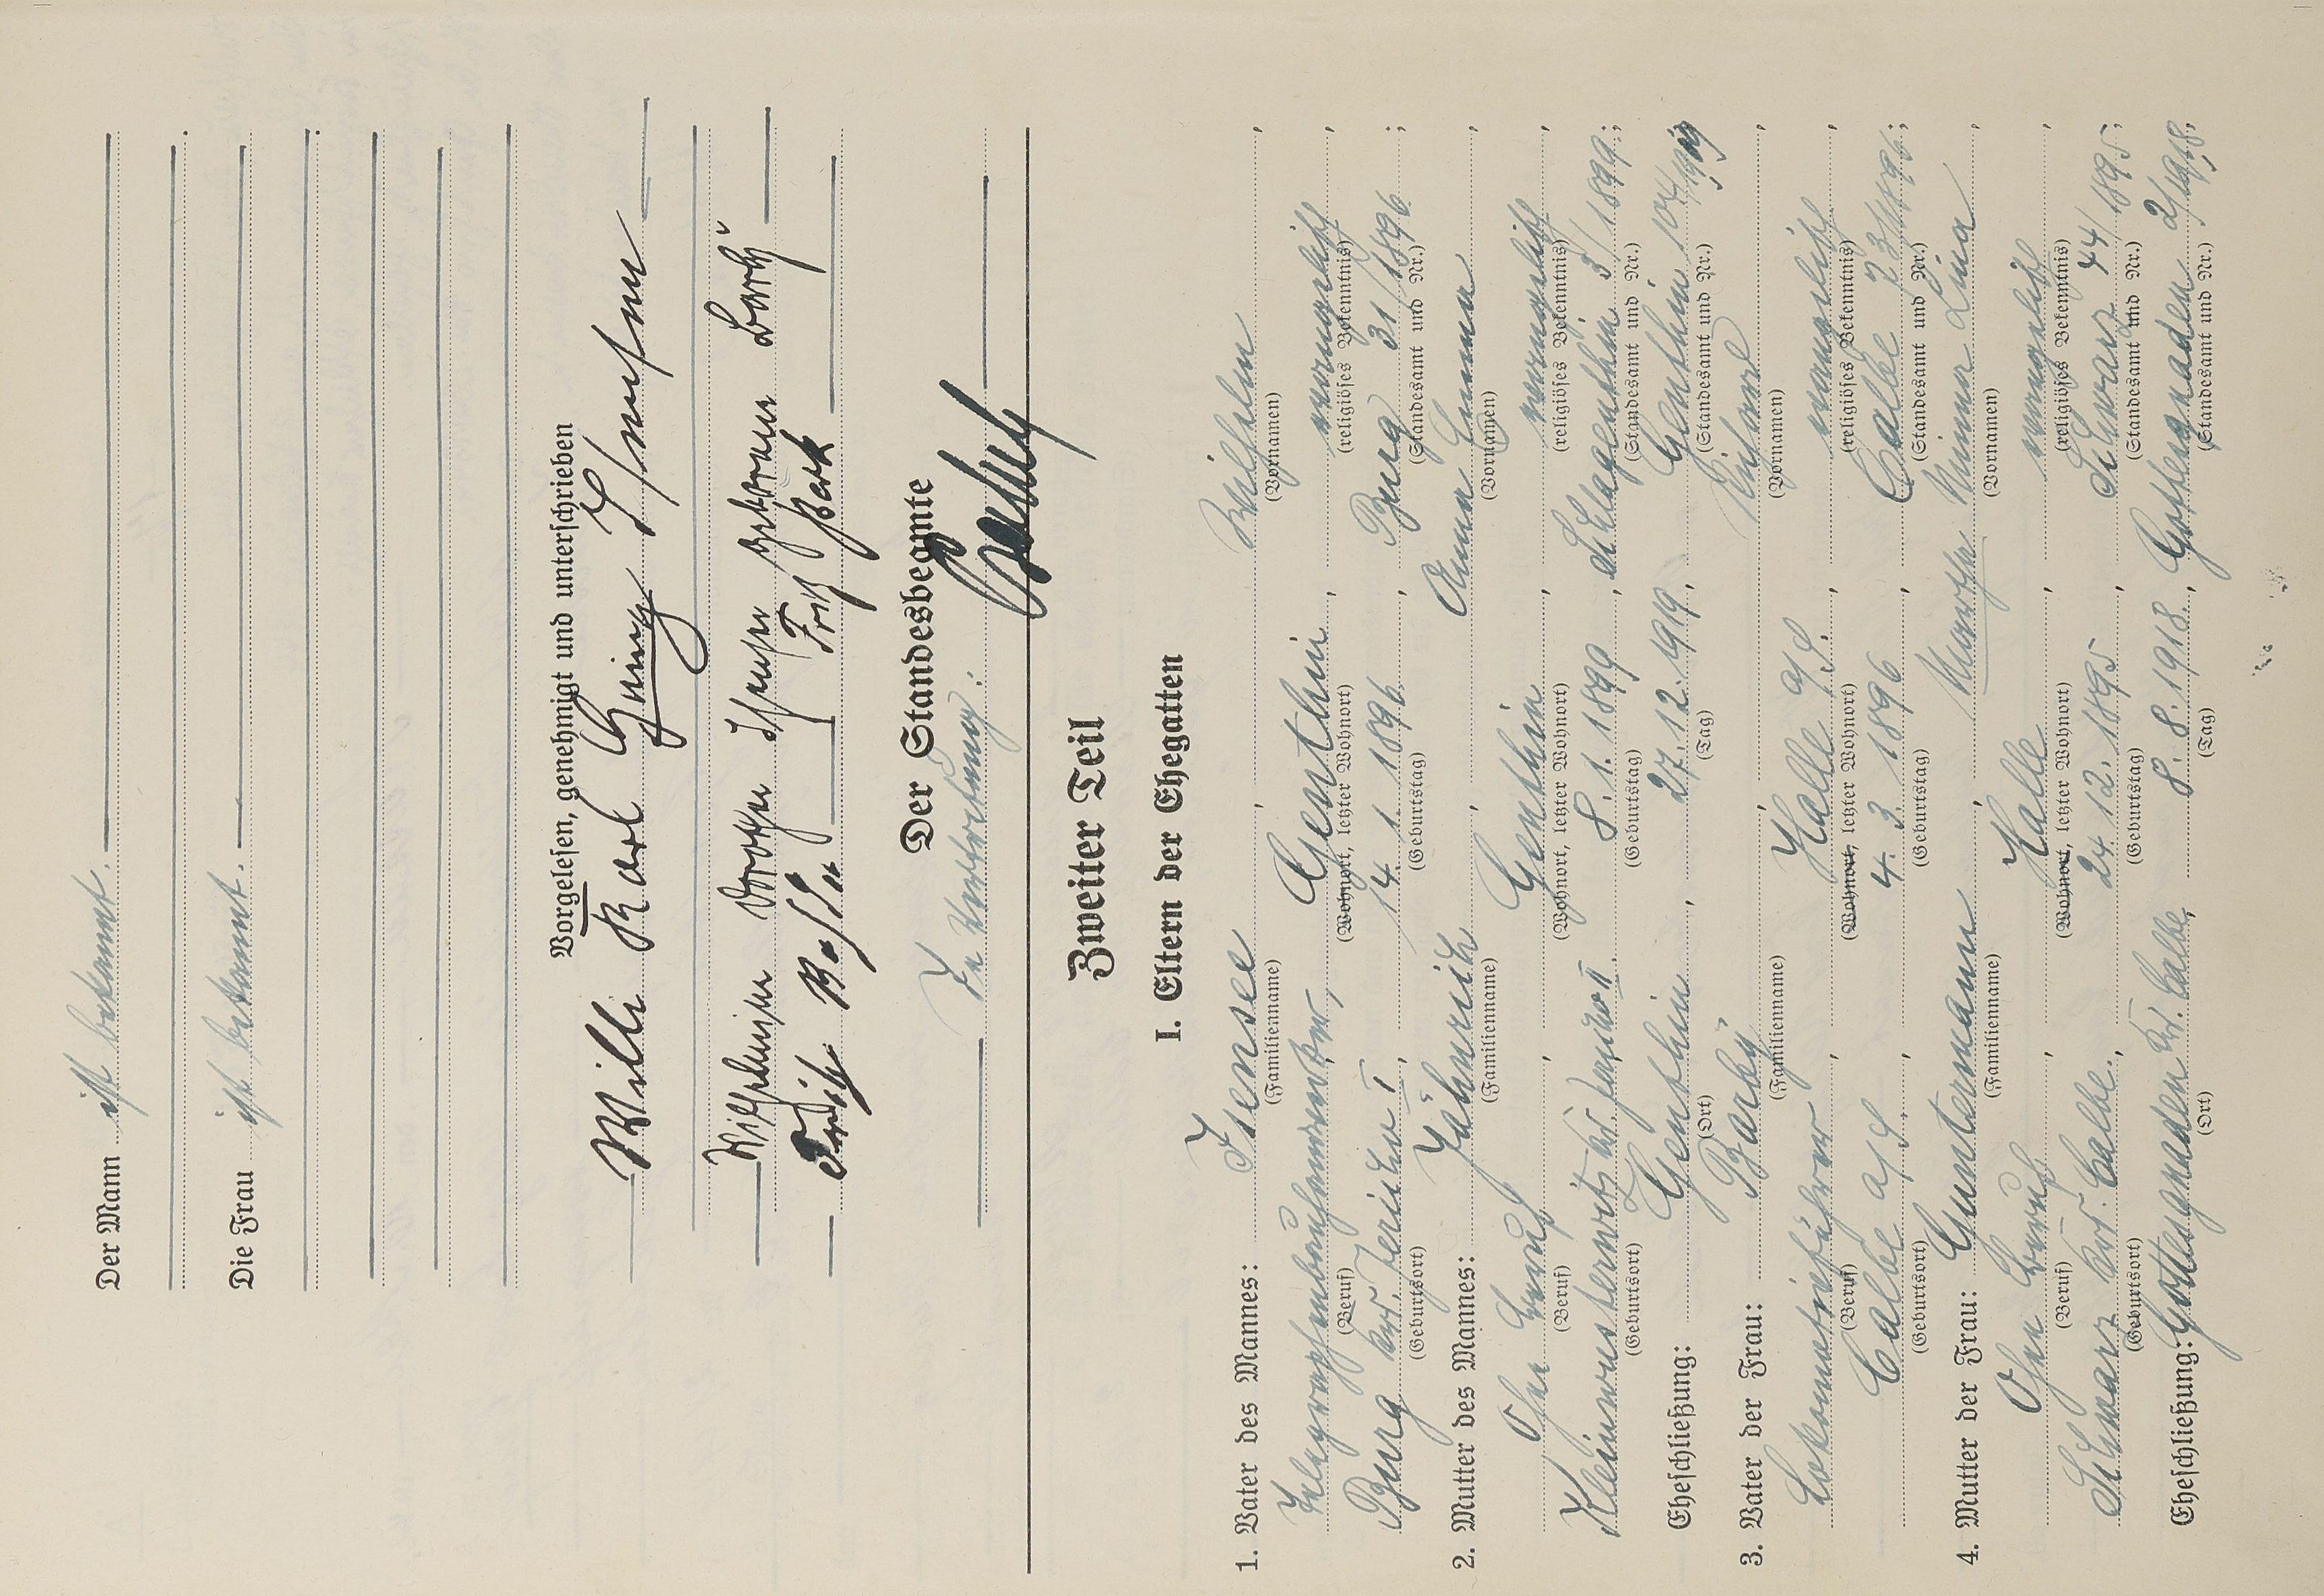 Der Mann ist bekannt.
Die Frau ist bekannt.
Vorgelesen, genehmigt und unterschrieben
Willi Karl Isensee
Wilhelmine geborene Barby
Fritz Bark
Der Standesbeamte
In Vertretung:
Zweiter Teil
I. Eltern der Ehegatten
1. Vater des Mannes: Isensee, Wilhelm,
(Familienname) (Vornamen)
Telegraphenbauhandwerker, Genthin, evangelisch,
(Beruf) (Wohnort, letzter Wohnort) (religiöses Bekenntnis)
Burg Krs. Jerichow I, 14. 1. 1896, Burg 31/1896;
(Geburtsort) (Geburtstag) (Standesamt und Nr.)
2. Mutter des Mannes: Jähnrich Anna Emma,
(Familienname) (Vornamen)
Ohne Beruf, Genthin, evangelisch,
(Beruf) (Wohnort, letzter Wohnort) (religiöses Bekenntnis)
Kleinwusterwitz Krs. Jerichow II. 8. 1. 1899, Schlagenthin 3/1899;
(Geburtsort) (Geburtstag) (Standesamt und Nr.)
Eheschließung: Genthin, 27. 12. 1919, Genthin 104/1919
(Ort) (Tag) (Standesamt und Nr.)
3. Vater der Frau: Barby, Richard,
(Familienname) (Vornamen)
Lokomotivführer, Halle a/S., evangelisch,
(Beruf) (Wohnort, letzter Wohnort) (religiöses Bekenntnis)
Calbe a/S., 4. 3. 1896, Calbe 73/1896;
(Geburtsort) (Geburtstag) (Standesamt und Nr.)
4. Mutter der Frau: Guntermann, Minna Lina,
(Familienname) (Vornamen)
Ohne Beruf, Halle, evangelisch,
(Beruf) (Wohnort, letzter Wohnort) (religiöses Bekenntnis)
Schwarz Krs. Calbe, 24. 12. 1895, Schwarz 44/1895;
(Geburtsort) (Geburtstag) (Standesamt und Nr.)
Eheschließung: Gottesgnaden Kr. Calbe, 8. 8. 1918, Gottesgnaden 2/1918.
(Ort) (Tag) (Standesamt und Nr.)